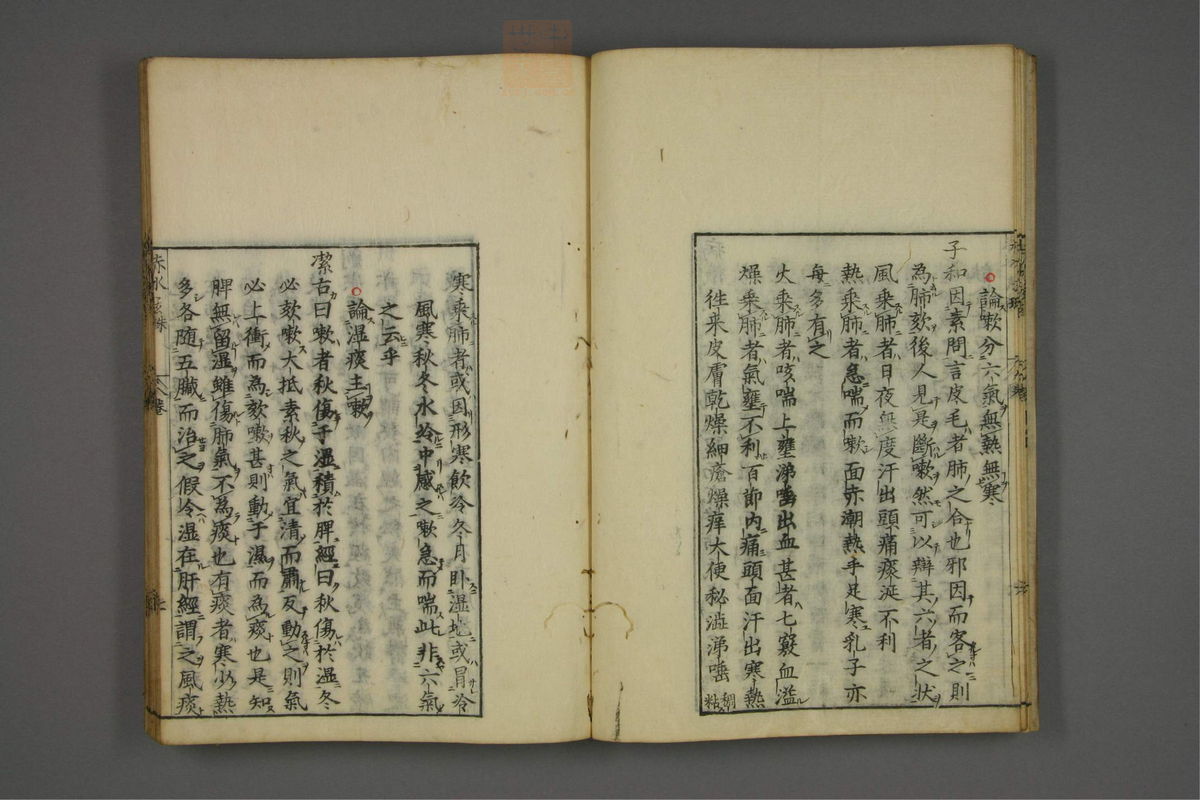 論嗽分六氣無熱無寒
子和因素問言皮毛者肺之合也邪因而客之則
為肺欬後人見是斷嗽然可以辯其六者之狀
風乘肺者日夜無度汗出頭痛痰涎不利
熱乘肺者急喘而嗽面赤潮熱手足寒乳子亦
每多有之
火乘肺者咳喘上壅涕唾出血甚者七竅血溢
燥乘肺者氣壅不利百節內痛頭面汗出寒熱
徃来皮膚乾燥細瘡燥痒大便秘澁涕唾稠粘
寒乘肺者或因形寒飲冷冬月卧湿地或冒冷
風寒秋冬水冷中感之嗽急而喘此非六氣
之云乎
論湿痰主嗽
潔古曰嗽者秋傷于湿積於脾經曰秋傷於湿冬
必欬嗽大抵素秋之氣宜清而肅反動之則氣
必上衝而為欬嗽甚則動于濕而為痰也是知
脾無留湿雖傷肺氣不為痰也有痰者寒少熱
多各随五臓而治之假令湿在肝經謂之風痰
赤水玄珠